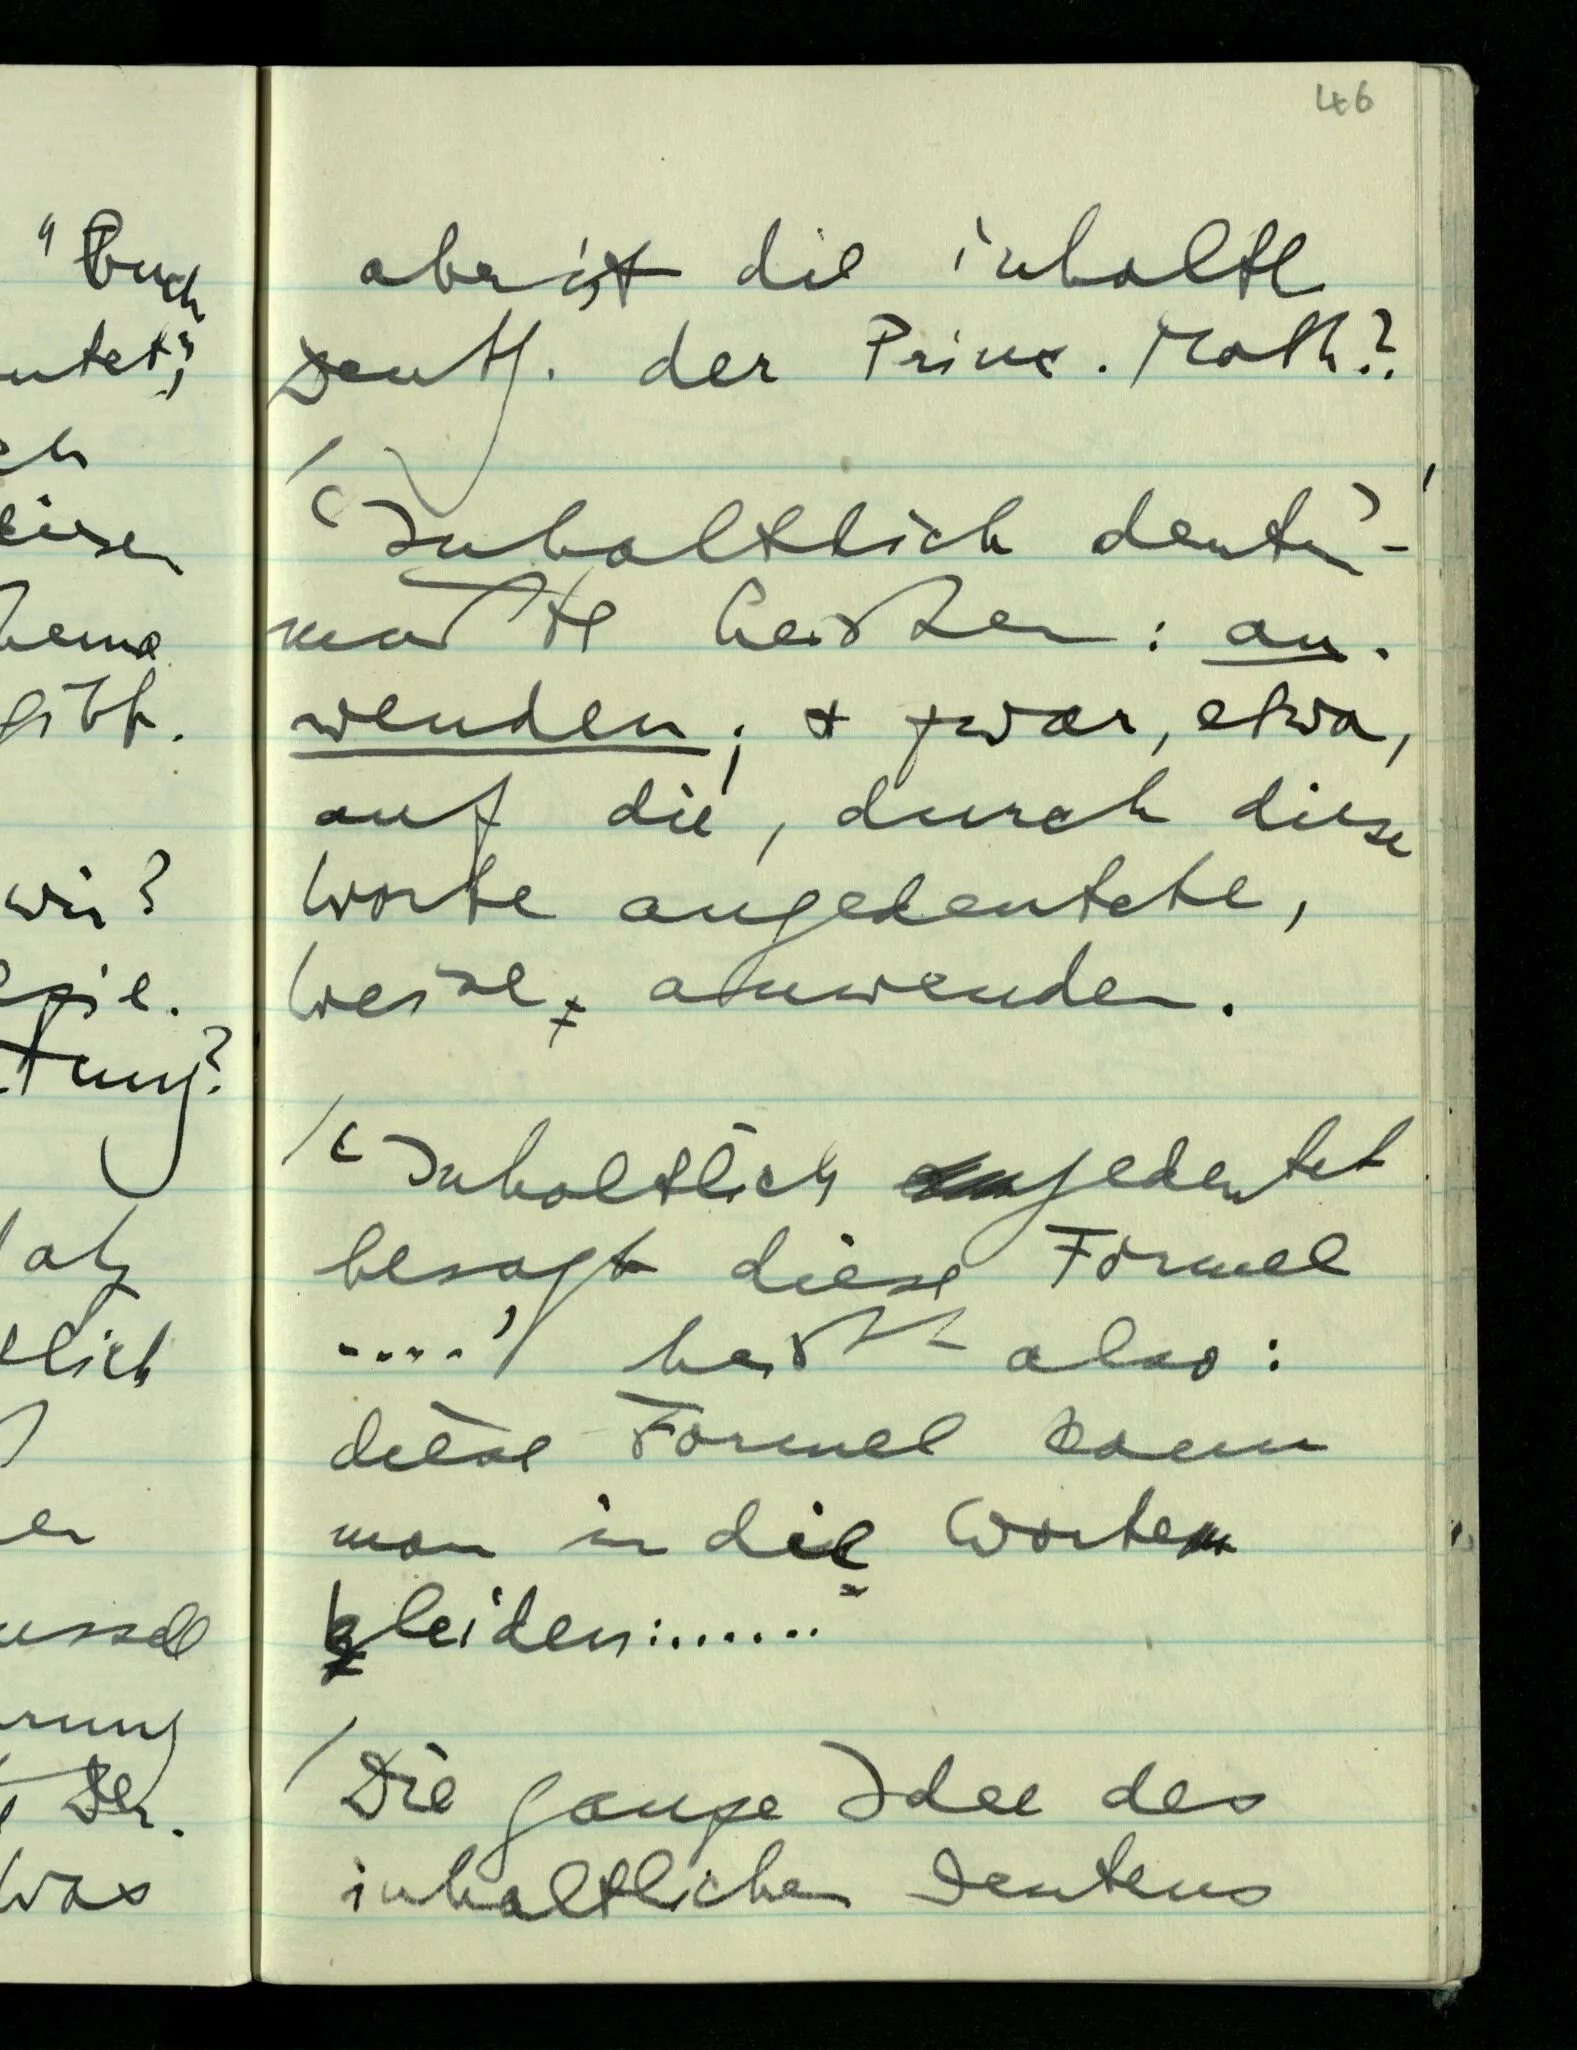 46
"Buch
utet?
ch
eisen
hema
gibt.
wir?
epie.
tung?
atz
tlich
er
ussell
rung
Der.
Was
aber ist die inhaltl
Deutg. der Princ. Math??
/ ‘Inhaltlich deuten’ -
müßte heißen: an-
wenden; & zwar, etwa,
auf die, durch diese
Worte angedeutete,
Weise, anwenden.
/ ‘Inhaltlich gedeutet
besagt diese Formel
....’ heißt also:
diese Formel kann
man in die Worte
kleiden:.......
/ Die ganze Idee des
inhaltlichen Deutens